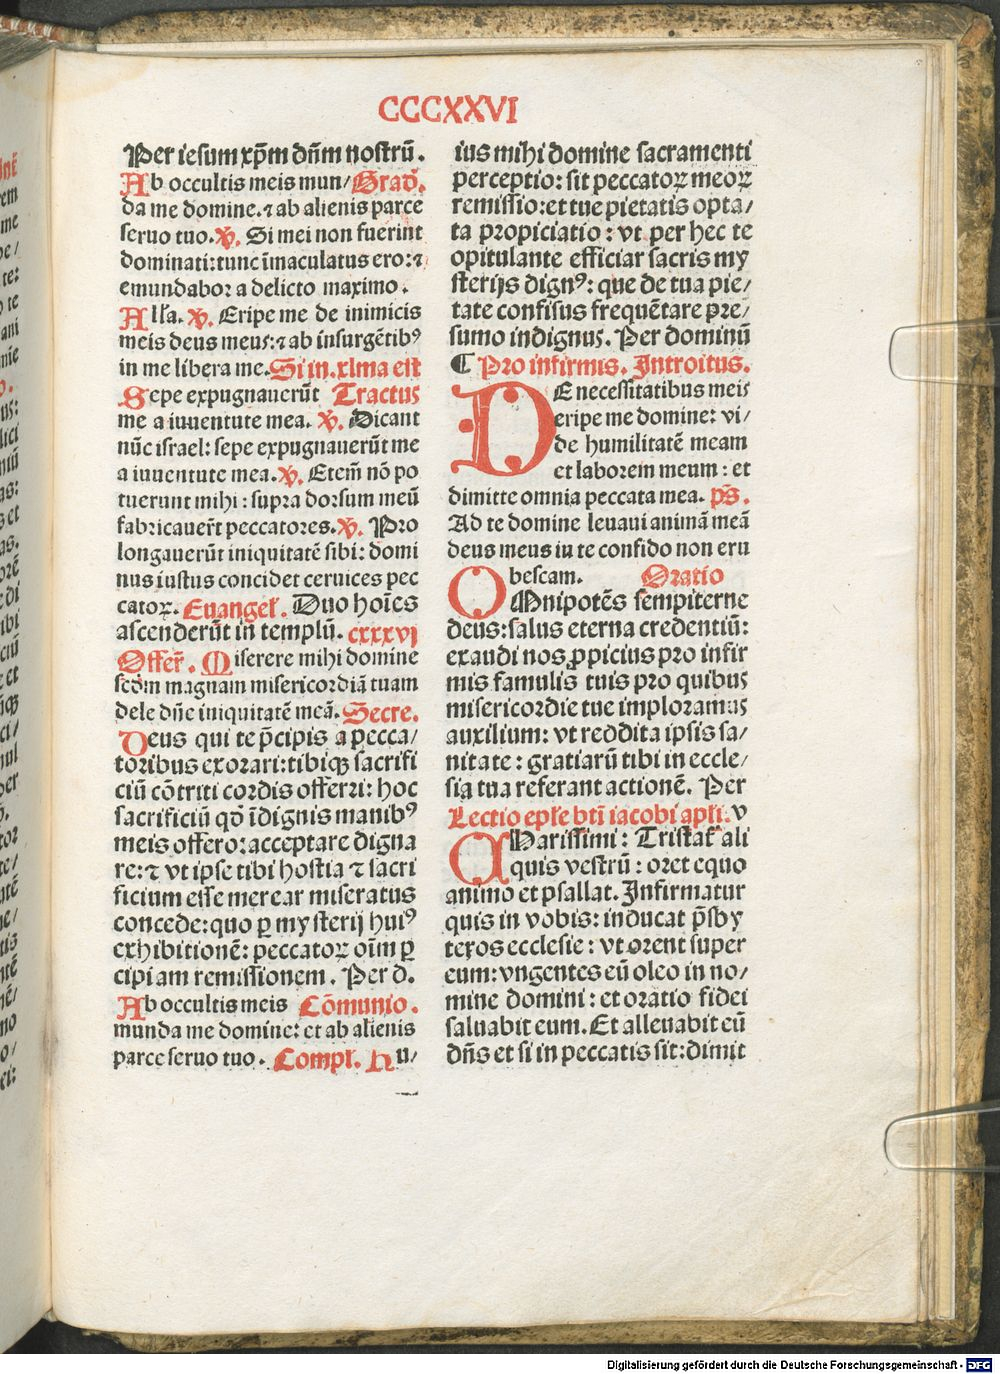 CCCXXVI
Per iesum xp̄m dn̄m nostrū.
Ab occultis meis mun/ Grad̄.
da me domine.⁊ ab alienis parce
seruo tuo. ℣. Si mei non fuerint
dominati:tunc īmaculatus ero:⁊
emundabor a delicto maximo.
All'a. ℣. Eripe me de inimicis
meis deus meus:⁊ ab insurgētibꝰ
in me libera me. Si in .xlma est
Sepe expugnauerūt Tractus
me a iuuentute mea. ℣. Dicant
nūc israel: sepe expugnauerūt me
a iuuentute mea. ℣. Etem̄ nō po
tuerunt mihi: supra dorsum meū
fabricauer̄t peccatores. ℣. Pro
longauerūt iniquitatē sibi: domi
nus iustus concidet ceruices pec
catoꝝ. Euangel'. Duo hoīes
ascenderūt in templū. cxxxvj
Offer̄. Miserere mihi domine
scd̄m magnam misericordiā tuam
dele dn̄e iniquitatē meā. Secre.
Deus qui te p̄cipis a pecca/
toribus exorari:tibiqꝫ sacrifi
ciū cōtriti cordis offerri: hoc
sacrificiū qd̄ īdignis manibꝰ
meis offero:acceptare digna
re:⁊ vt ipse tibi hostia ⁊ sacri
ficium esse merear miseratus
concede:quo ꝑ mysterij huiꝰ
exhibitionē: peccatoꝝ oīm ꝑ
cipiam remissionem. Per d.
Ab occultis meis Cōmunio.
munda me domine: et ab alienis
parce seruo tuo. Compl'. Hu/
ius mihi domine sacramenti
perceptio: sit peccatoꝝ meoꝝ
remissio:et tue pietatis opta/
ta propiciatio: vt per hec te
opitulante efficiar sacris my
sterijs dignꝰ: que de tua pie/
tate confisus frequētare pre/
sumo indignus. Per dominū
¶ Pro infirmis. Introitus.
DE necessitatibus meis
eripe me domine: vi/
de humilitatē meam
et laborem meum: et
dimitte omnia peccata mea. ps̄.
Ad te domine leuaui animā meā
deus meus in te confido non eru
bescam. Oratio
OMnipotēs sempiterne
deus:salus eterna credentiū:
exaudi nos ꝓpicius pro infir
mis famulis tuis pro quibus
misericordie tue imploramus
auxilium: vt reddita ipsis sa/
nitate: gratiarū tibi in eccle/
sia tua referant actionē. Per
Lectio epl'e btī iacobi apl'i. v
CHarissimi: Tristat' ali
quis vestrū: oret equo
animo et psallat. Infirmatur
quis in vobis: inducat p̄sby
teros ecclesie: vt orent super
eum:vngentes eū oleo in no/
mine domini: et oratio fidei
saluabit eum. Et alleuabit eū
dn̄s et si in peccatis sit:dimit
Digitalisierung gefördert durch die Deutsche Forschungsgemeinschaft - DFG